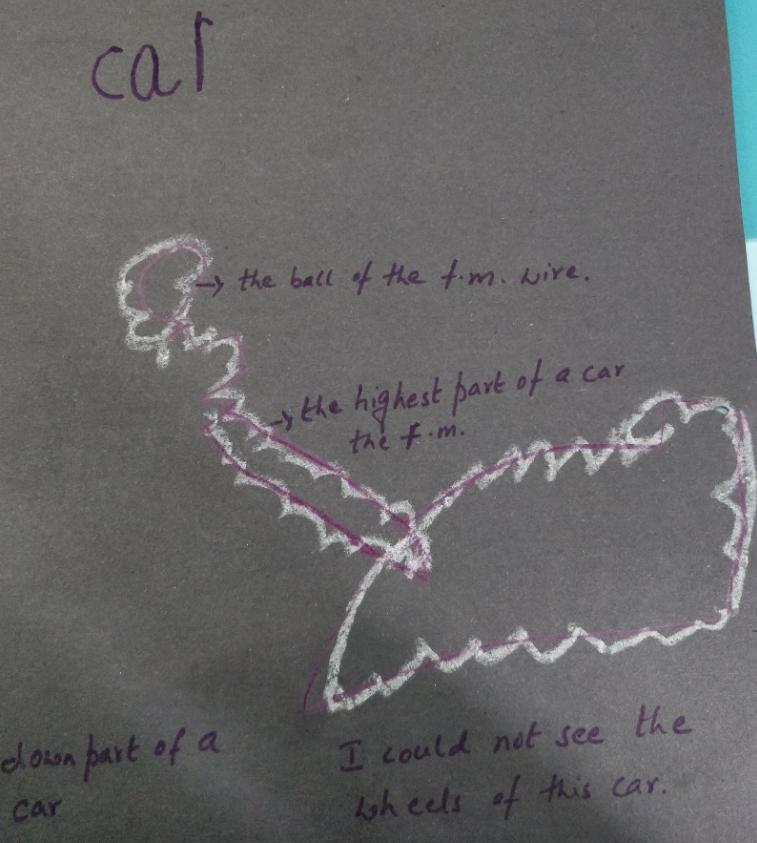 car
the ball of the f.m. wire.
the highest part of a car
the f.m.
down part of a
car
I could not see the
wheels of this car.